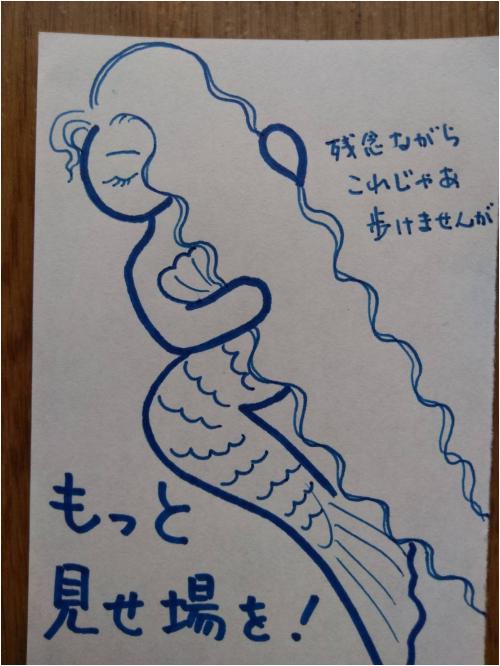 残念ながら
これじゃあ
歩けませんが
もっと
見せ場を!